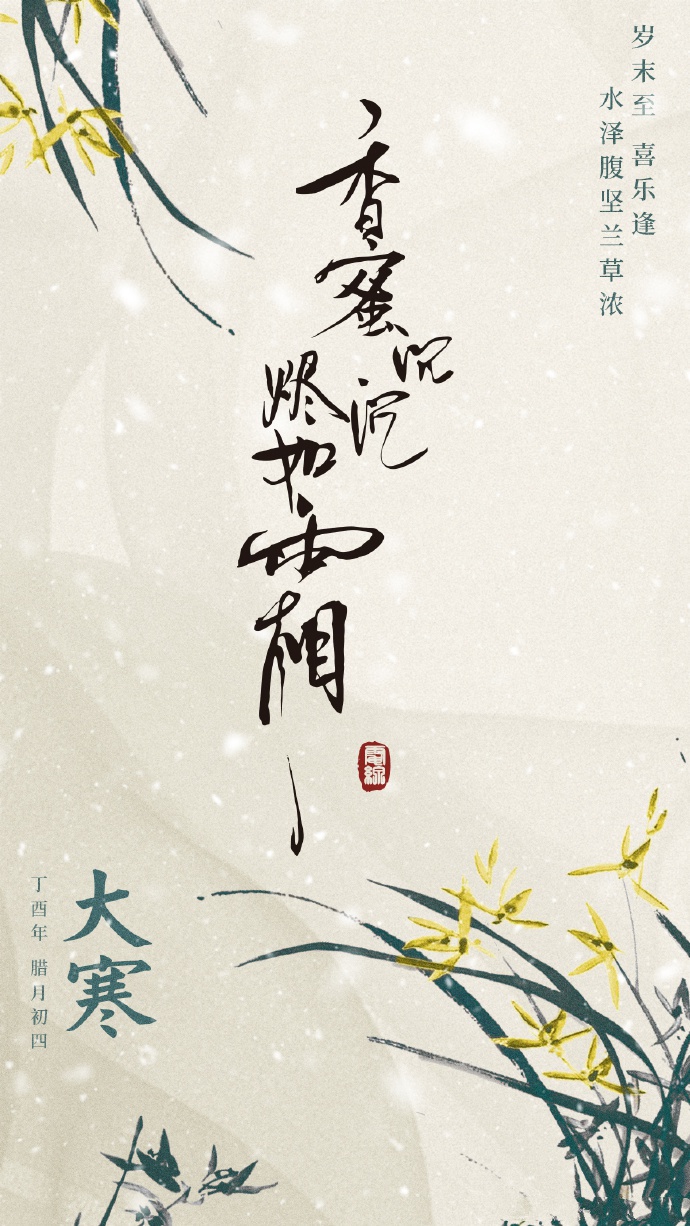 岁末至 喜乐逢
水泽腹坚兰草浓
香蜜沉沉
烬如霜
大寒
丁酉年 腊月初四